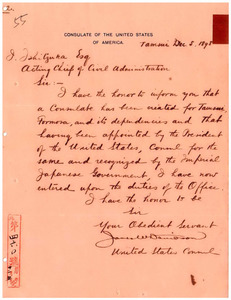 55
CONSULATE OF THE UNITED STATES
OF AMERICA
Tamsui Dec 3. 189
I. Ishizuka Esq
Acting Chief of Civil Administration
Sir:-
I have the honor to inform you that
a Consulate has been created for Tamsui,
Formosa, and its dependencies and that
having been appointed by the President
of the United States, Consul for the
same and recognized by the Imperial
Japanese Government, I have now
entered upon the duties of the Office
I have the honor to be
Sir
Your Obedient Servant
James W Davidson
United States Consul